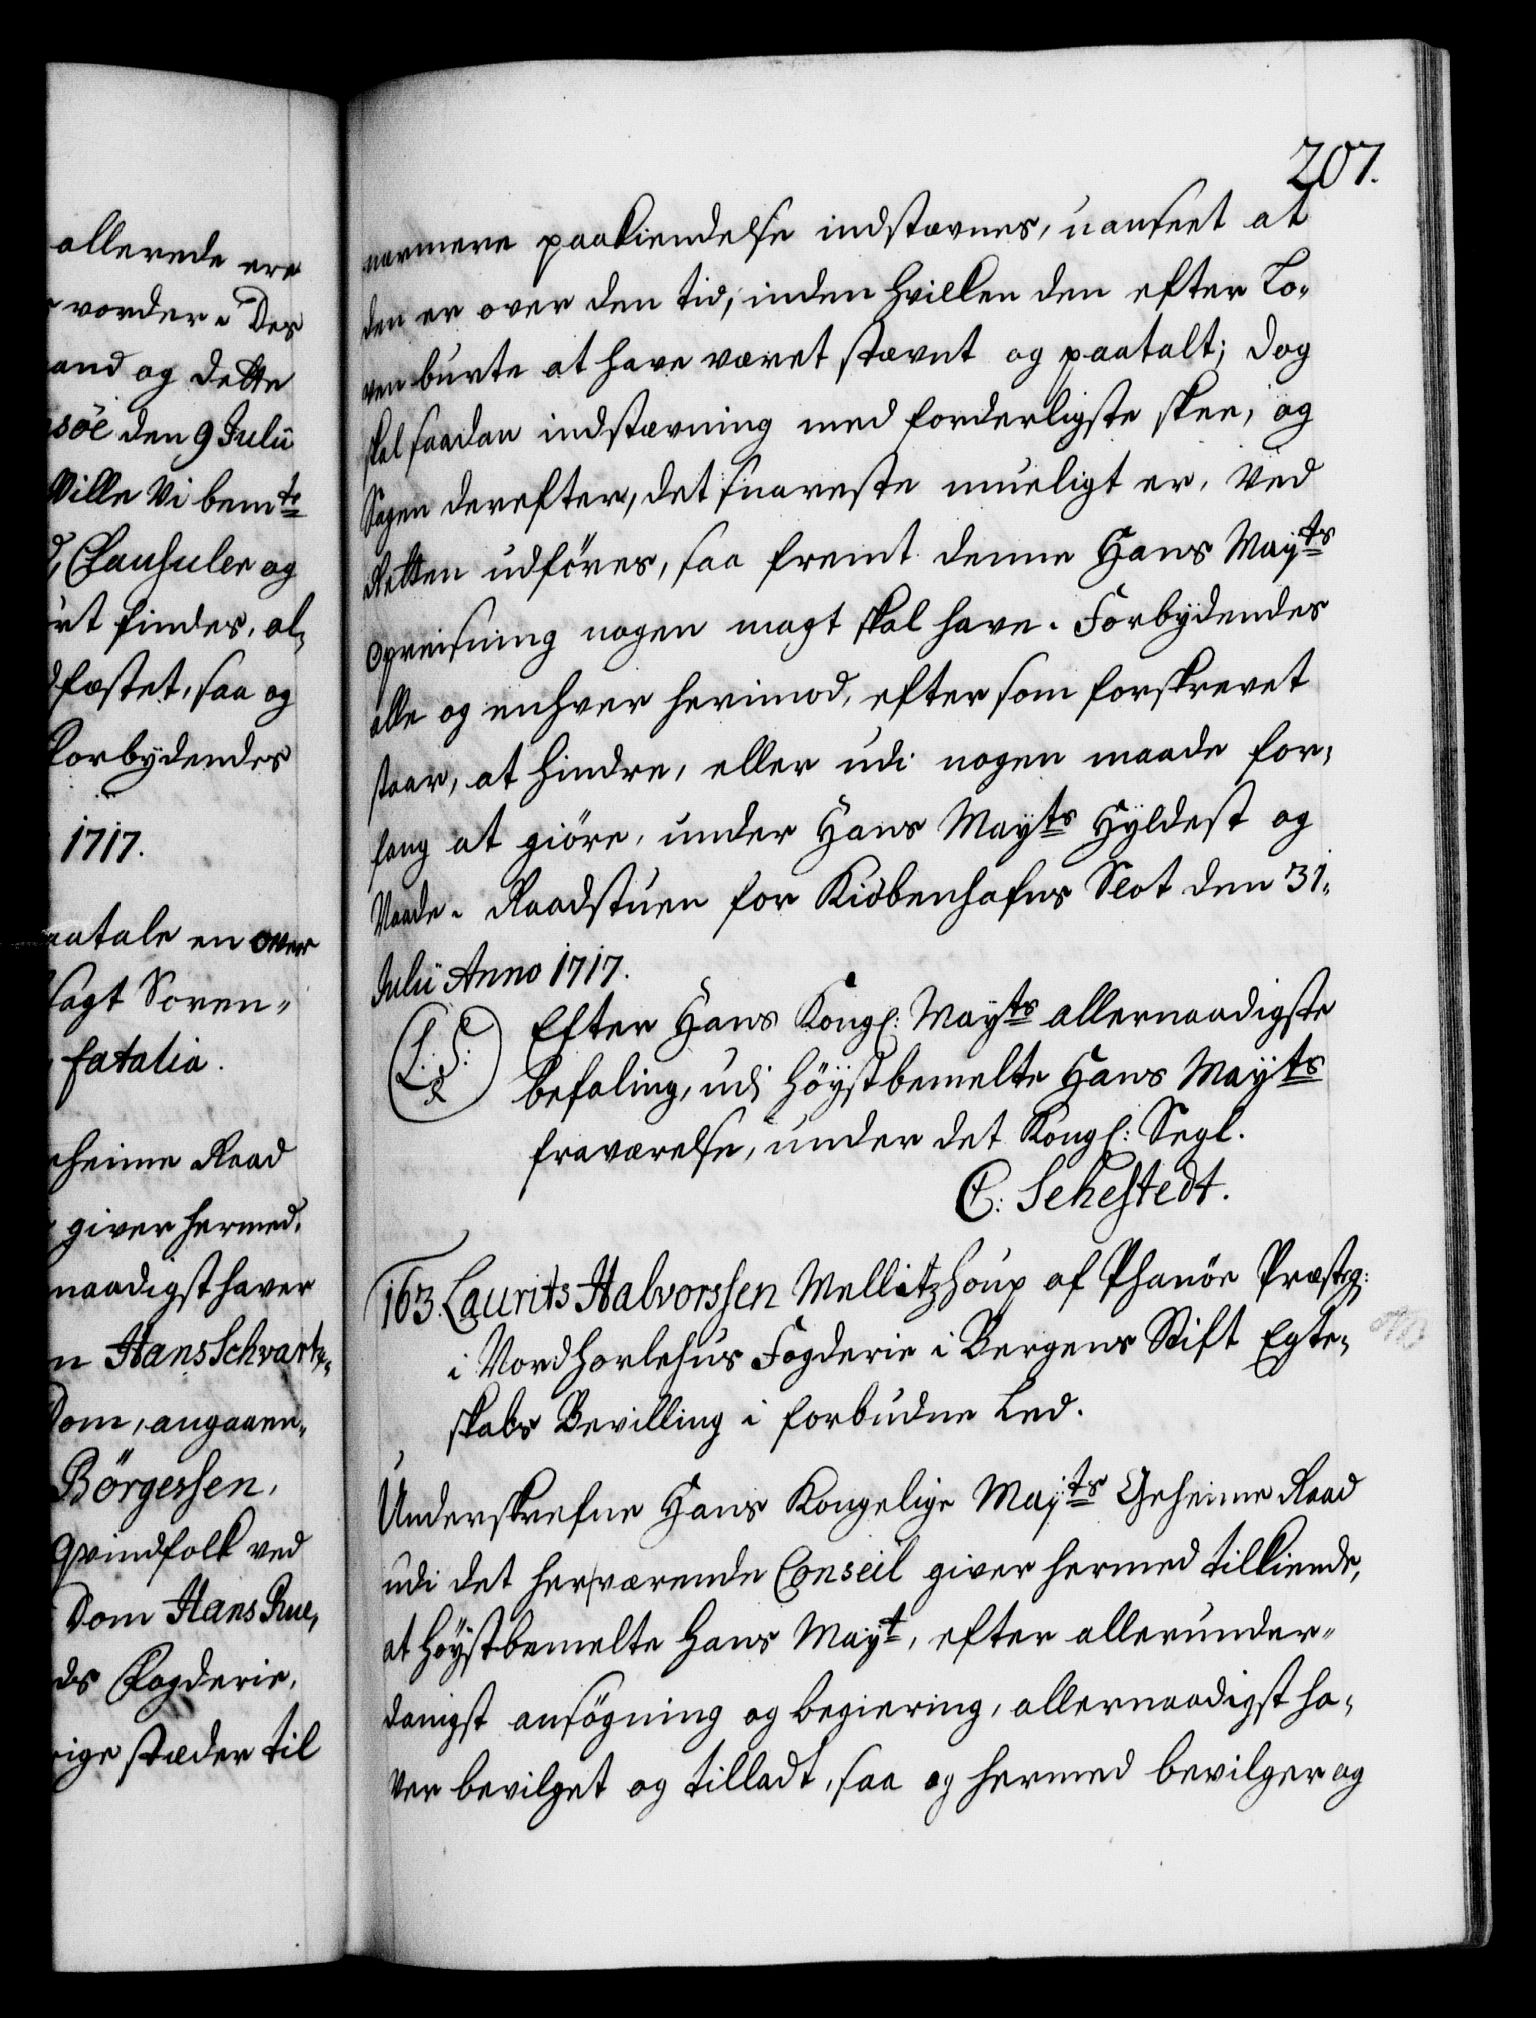 allerede ere
vorder. Des
and og dette
søe den 9 Julii
Ville Vi bemte
Clausuler og
rt findes, al,
fæstet, saa og
Forbydendes
1717.
aatale en over
sagt Soren,,
fatalia.
eheime Raad
giver hermed,
naadigst haver
n Hans Schvartz,,
Dom, angaaen,,
Börgessen,
Qvindfolk ved
Dom Hans Rue,
ds Fogderie,
rige stæder til
207.
nærmere paakiendelse indstævnes, uanseet at
den er over den tid, inden hvilken den efter Lo,
ven burte at have været stævnt og paatalt; dog
skal saadan indstævning med forderligste skee, og
Sagen derefter, det snareste mueligt er, ved
Retten udföres, saa fremt denne Hans Mayts
Opreisning nogen magt skal have. Forbydendes
alle og enhver herimod, efter som forskrevet
staar, at hindre, eller udi nogen maade for,
fang at giöre, under Hans Mayts Hyldest og
Naade. Raadstuen for Kiöbenhafns Slot den 31,
Julii Anno 1717.
(L: S:) Efter Hans Kongl: Mayts allernaadigste
befaling, udi höystbemelte Hans Mayts
fraværelse, under det Kongl: Segl.
C: Sehestedt.
163. Laurits Halvorssen Mellitzhoup af Phanöe Præsteg:
i Nordhorlehus Fogderie i Bergens Stift Egte,
skabs Bevilling i forbudne Led.
Underskrefne Hans Kongelige Mayts Geheime Raad
udi det herværende Conseil giver hermed tilkiende,
at Höystbemelte Hans Mayt, efter allerunder,,
danigst ansögning og begiering, allernaadigst ha,
ver bevilget og tilladt, saa og hermed bevilger og